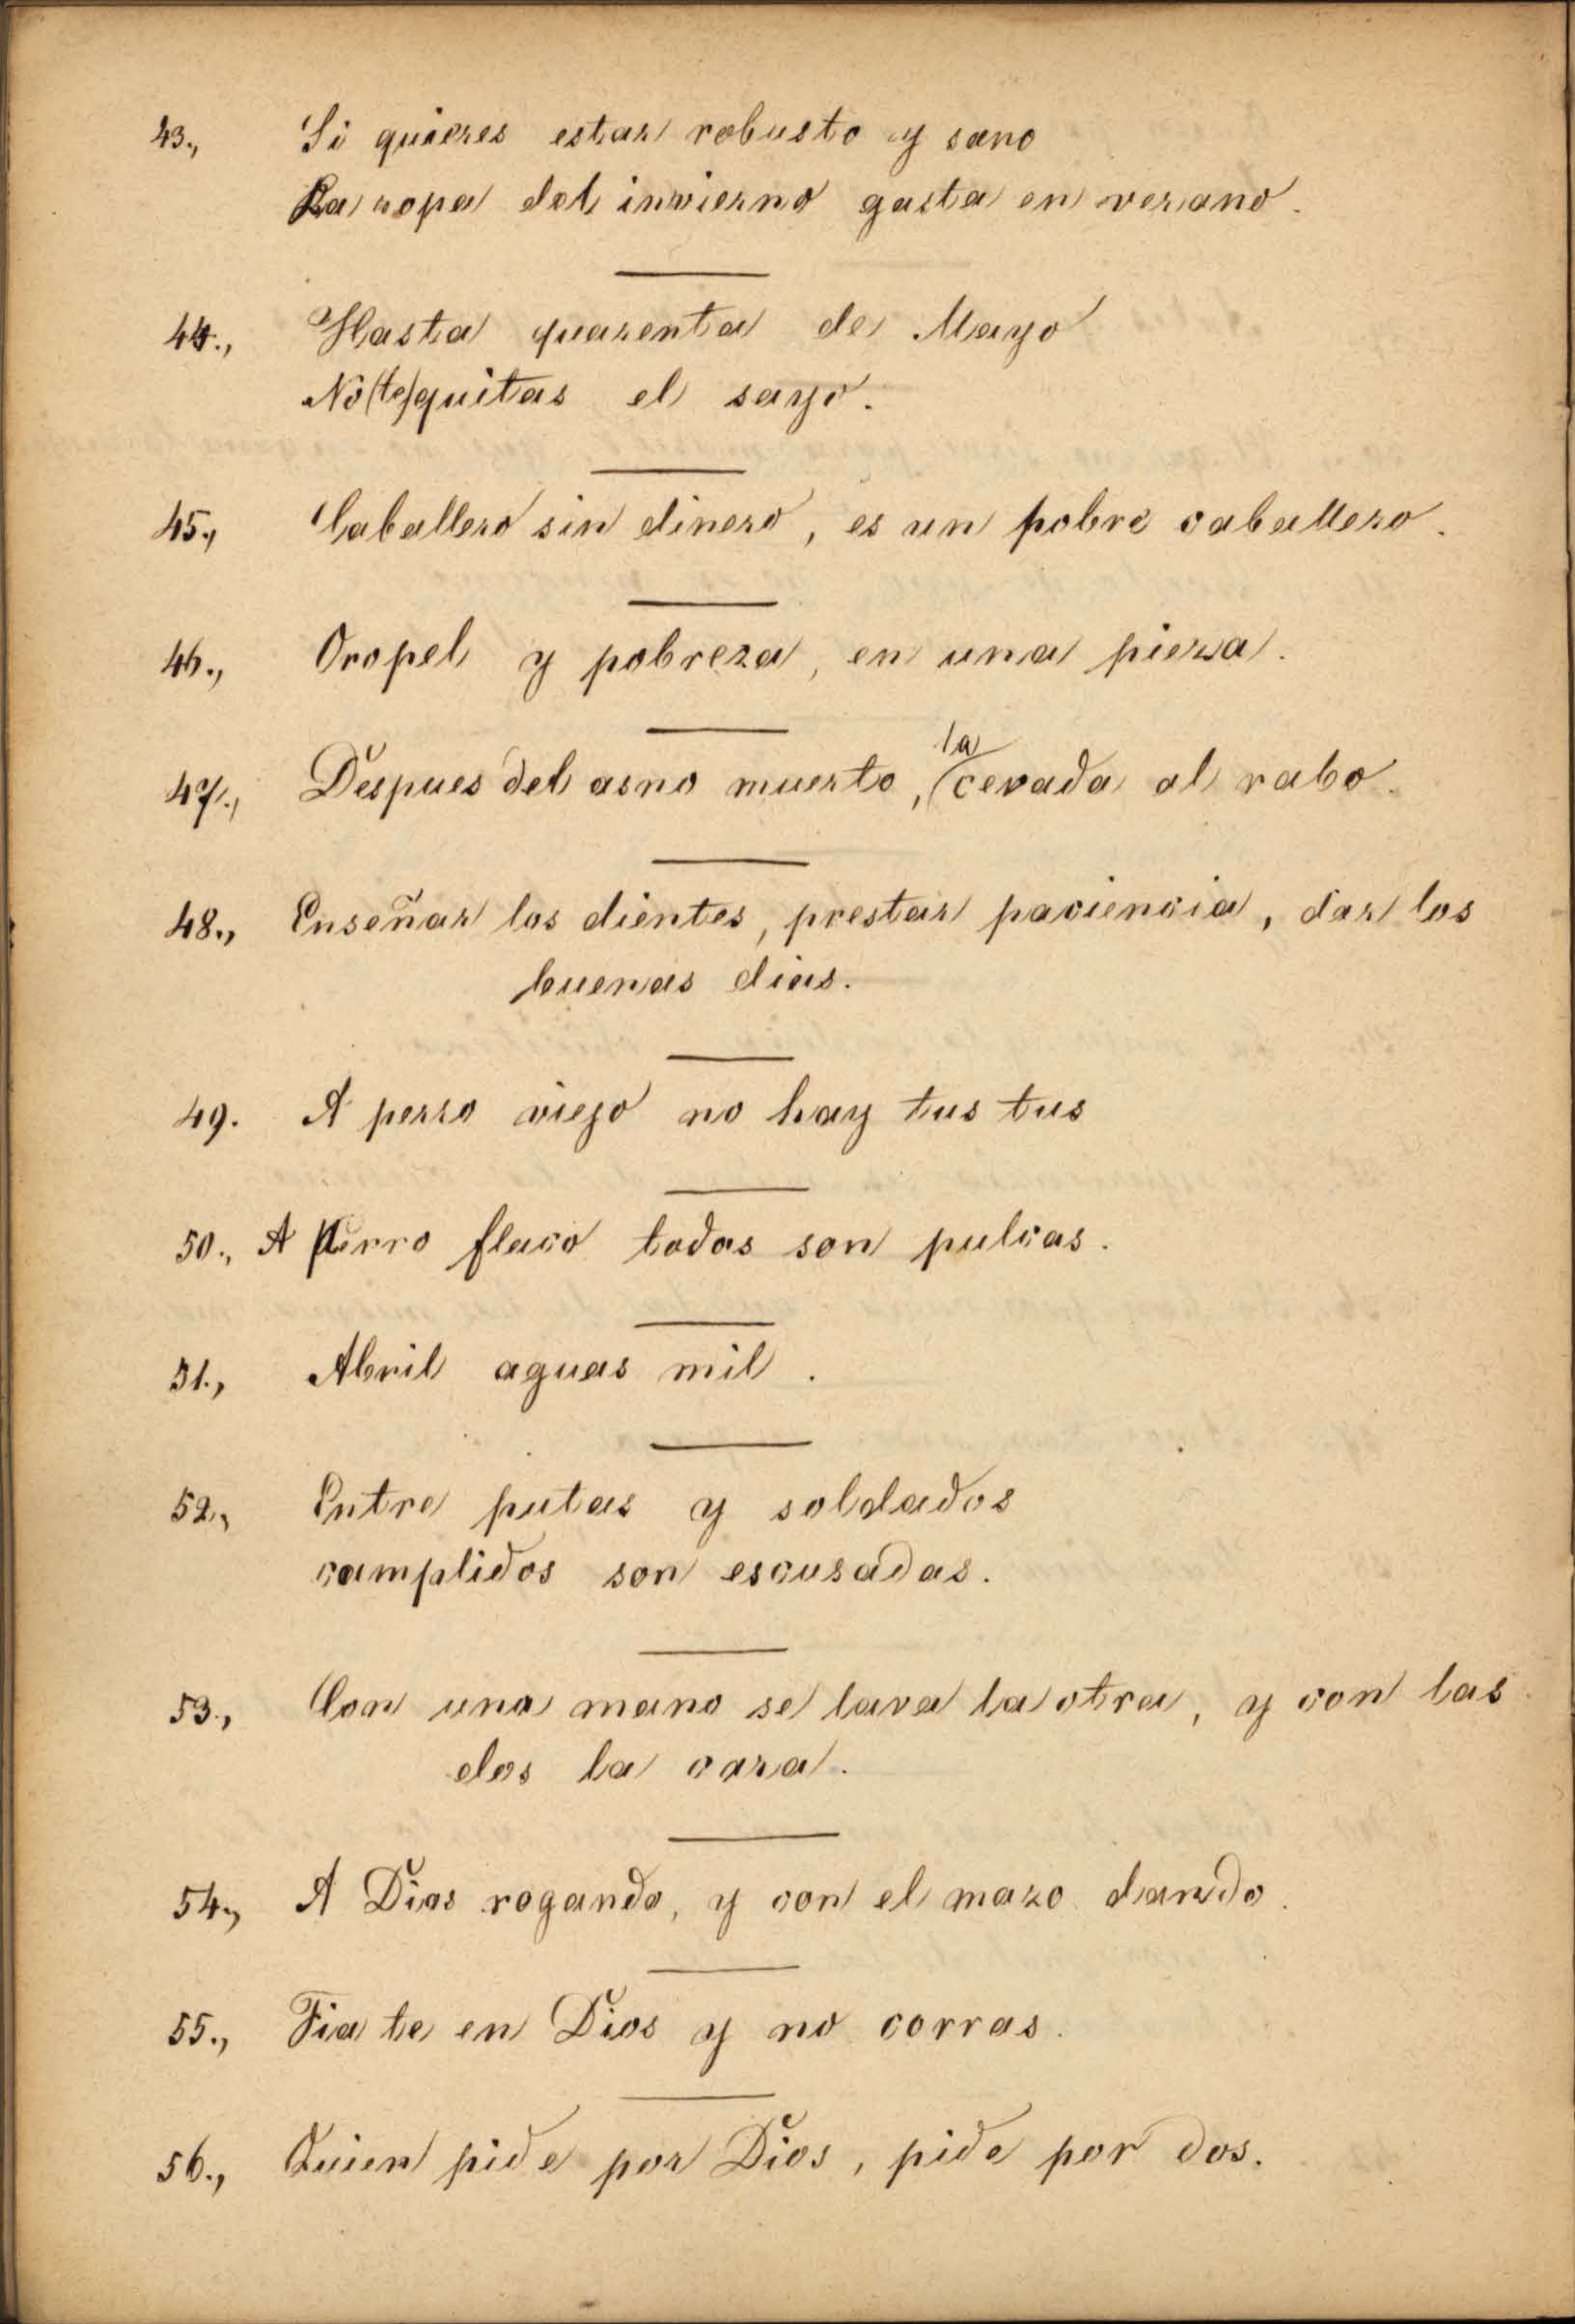 43., Si quieres estar robusto y sano
La ropa del invierno gasta en verano.
44., Hasta quarenta de Mayo
No (te) quitas el sayo.
45., Caballero sin dinero, es un pobre caballero.
46., Oropel y pobreza, en una pieza.
la
47., Despues del asno muerto, (cevada al rabo.
48., Enseñar los dientes, prestar paciencia, dar los
buenas dias.
49. A perro viejo no hay tus tus
50., A Perro flaco todas son pulcas.
51., Abril aguas mil.
52., Entre putas y soldados
cumplidos son escusadas.
53., Con una mano se lava la otra, y con las
dos la cara.
54., A Dios rogando, y con el mazo dando.
55., Fia te en Dios y no corras.
56., Quien pide por Dios, pide por dos.